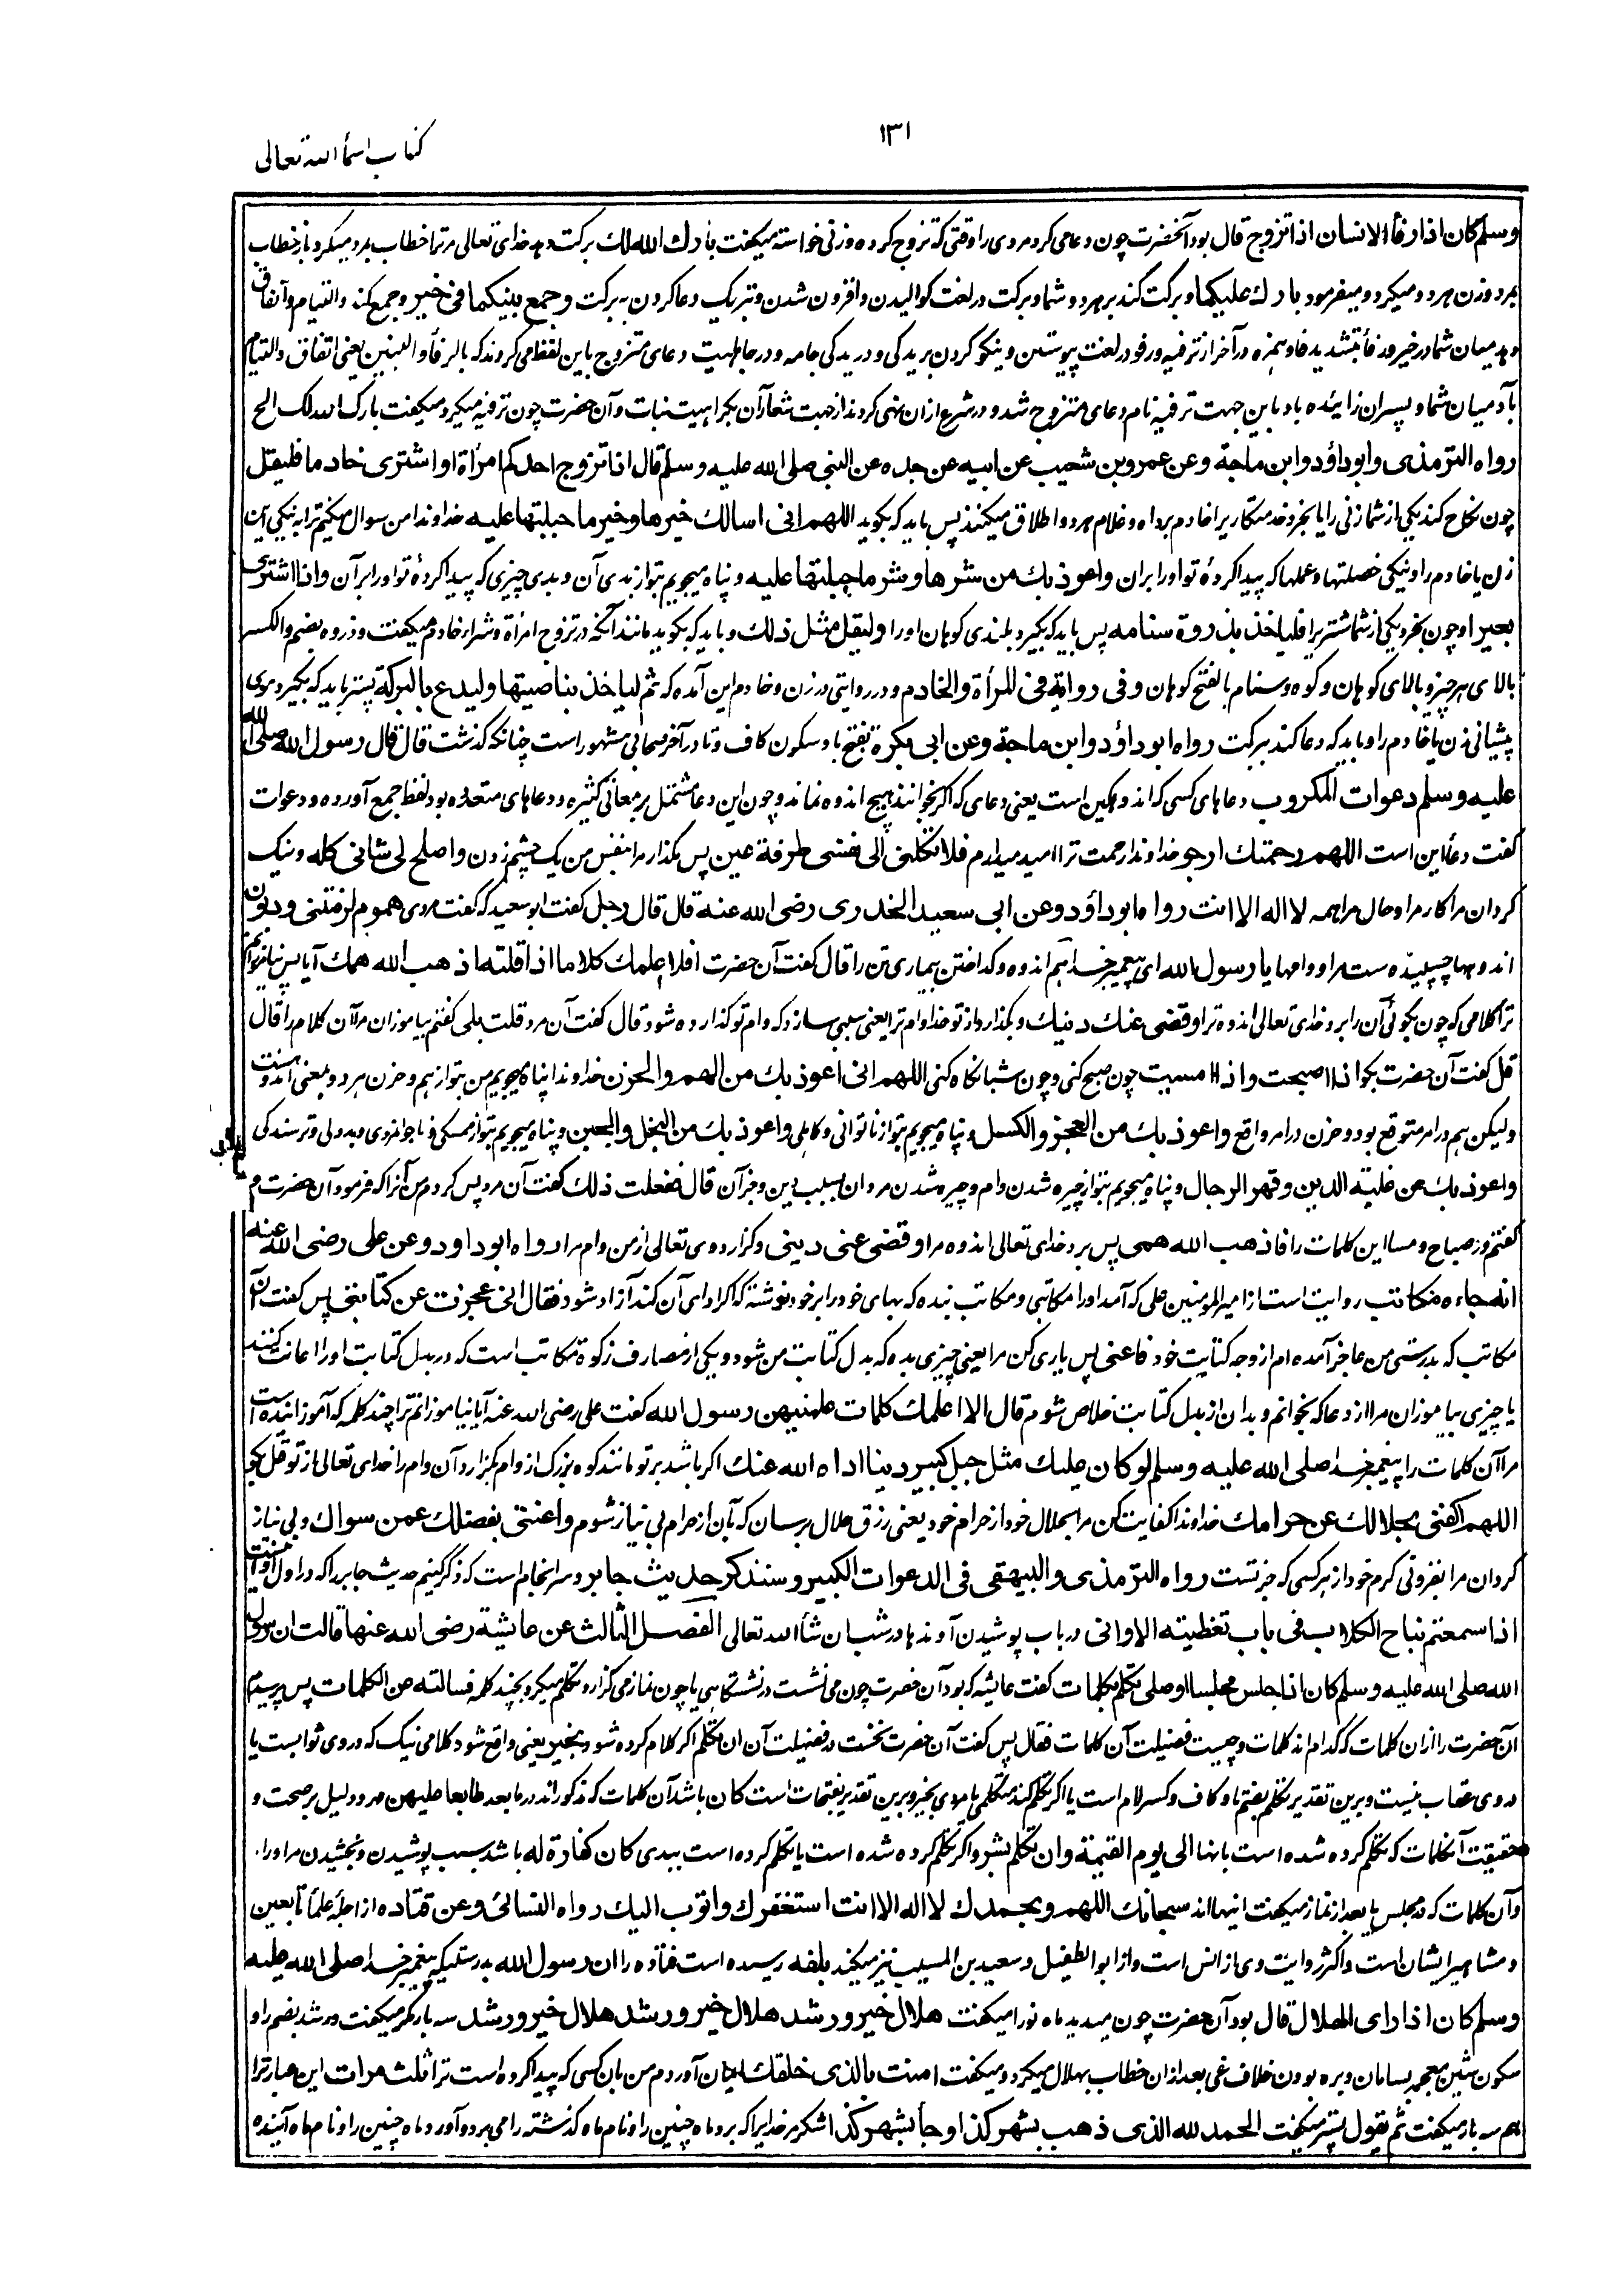 ۱۳۱
کتاب اسمأ الله تعالی
وسلم کان اذا رفأ الانسان اذا تزوج قال بود آنحضرت چون دعا می کرد مردی را وقتی که تزوج کرده وزنی خواسته میگفت بارك الله لك برکت دهد خدای تعالی مر ترا خطاب بمرد میکرد باز خطاب
بمرد وزن هر دو میکرد و میفرمود بارك علیکما و برکت کند بر هر دو شما و برکت در لغت کوالیدن و افزون شدن و تبریک دعا کردن به برکت وجمع بینکما فی خیر و جمع کند و التیام و اتفاق
دهد میان شما در خیر و رفأ بتشدید فا و همزه در آخر از ترفیه و رفو در لغت پیوستن و نیکو کردن بریدگی و دریدگی جامه و در جاهلیت دعای متزوج باین لفظ می کردند که بالرفأ والبنین یعنی اتفاق و التیام
باد میان شما و پسران زائیده باد باین جهت ترفیه نام دعای متزوج شد و در شرع ازان نهی کردند از جهت شعار آن بکراهیت بنات و آن حضرت چون ترفیه میکرد میگفت بارک الله لک الخ
رواه الترمذی وابو داؤد وابن ماجة وعن عمرو بن شعیب عن ابیه عن جده عن النبی صلی الله علیه وسلم قال اذا تزوج احدکم امرأة او اشتری خادما فلیقل
چون نکاح کند یکی از شما زنی را یا بخرد خدمتکاریرا خادم بر داه و غلام هر دو اطلاق میکنند پس باید که بگوید اللهم انی اسالك خیرها وخیر ما جبلتها علیه خداوندا من سوال میکنم ترا به نیکی این
زن یا خادم را و نیکی خصلتها و عملها که پیدا کردۀ تو او را بران واعوذ بك من شرها وشر ما جبلتها علیه و پناه میجویم بتو از بدی آن و بدی چیزی که پیدا کردۀ تو او را بر آن واذا اشتری
بعیرا و چون بخرد یکی از شما شتریرا فلیاخذ بذروة سنامه پس باید که بگیرد بلندی کوهان او را ولیقل مثل ذلك و باید که بگوید مانند آنکه در تزوج امرأة و شراء خادم میگفت و ذروه بضم والکسر
بالای هر چیز و بالای کوهان و کوه و سنام بالفتح کوهان وفی روایة فی المرأة والخادم و در روایتی در زن و خادم این آمده که ثم لیاخذ بناصیتها ولیدع بالبرکة پستر باید که بگیرد موی
پیشانی زن یا خادم را و باید که دعا کند ببرکت رواه ابو داؤد وابن ماجة وعن ابی بکرة بفتح با و سکون کاف و تا در آخر صحابی مشهور است چنانکه گذشت قال قال رسول الله صلی الله
علیه وسلم دعوات المکروب دعاهای کسی که اندوهگین است یعنی دعای که اگر بخوانند هیچ اندوه نماند و چون این دعا مشتمل بر معانی کثیره و دعاهای متعدده بود لفظ جمع آورده و دعوات
گفت دعأ این است اللهم رحمتك ارجو خداوندا رحمت ترا امید میدارم فلا تکلنی الی نفسی طرفة عین پس مگذار مرا بنفس من یک چشم زدن واصلح لی شانی کله و نیک
گردان مرا کار مرا و حال مرا همه لا اله الا انت رواه ابو داؤد وعن ابی سعید الخدری رضی الله عنه قال قال رجل گفت ابو سعید که گفت مردی هموم لزمتنی ودیون
اندوهها چسپیده است مرا و وامها یا رسول الله ای پیغمبر خدا هم اندوه و گداختن بیماری تن را قال گفت آن حضرت افلا اعلمك کلاما اذا قلته اذهب الله همك آیا پس نیاموزانم
ترا کلامی که چون بگوئی آن را ببرد خدای تعالی اندوه ترا وقضی عنك دینك و بگذارد از تو خدا وام ترا یعنی سببی سازد که وام تو گذارده شود قال گفت آن مرد قلت بلی گفتم بیاموزان مرا آن کلام را قال
قل گفت آن حضرت بگو اذا اصبحت واذا امسیت چون صبح کنی و چون شبانگاه کنی اللهم انی اعوذ بك من الهم والحزن خداوندا پناه میجویم من بتو از هم و حزن هر دو بمعنی اندوه است
ولیکن هم در امر متوقع بود و حزن در امر واقع واعوذ بك من العجز والکسل و پناه میجویم بتو از ناتوانی و کاهلی واعوذ بك من البخل والجبن و پناه میجویم بتو از ممسکی و ناجوانمردی و بددلی و ترسندگی
واعوذ بك من غلبة الدین وقهر الرجال و پناه میجویم بتو از چیره شدن وام و چیره شدن مردان بسبب دین و جز آن قال ففعلت ذلك گفت آن مرد پس کردم من آنرا که فرمود آن حضرت و
گفتم در صباح و مسا این کلمات را فاذهب الله همی پس برد خدای تعالی اندوه مرا وقضی عنی دینی و گزارد وی تعالی از من وام مرا رواه ابو داود وعن علی رضی الله عنه
انه جاءه مکاتب روایت است از امیر المؤمنین علی که آمد او را مکاتبی و مکاتب بنده که بهای خود را بر خود نوشته که اگر ادای آن کند آزاد شود فقال انی عجزت عن کتابتی پس گفت آن
مکاتب که بدرستی من عاجز آمده ام از وجه کتابت خود فاعنی پس یاری کن مرا یعنی چیزی بده که بدل کتابت من شود و یکی از مصارف زکوة مکاتب است که در بدل کتابت او را اعانت کنند
یا چیزی بیاموزان مرا از دعا که بخوانم و بدان از بدل کتابت خلاص شوم قال الا اعلمك کلمات علمنیهن رسول الله گفت علی رضی الله عنه آیا نیاموزانم ترا چند کلمه که آموزانیده است
مرا آن کلمات را پیغمبر خدا صلی الله علیه وسلم لو کان علیك مثل جبل کبیر دینا اداه الله عنك اگر باشد بر تو مانند کوه بزرگ از وام بگزارد آن وام را خدای تعالی از تو قل بگو
اللهم اکفنی بحلالك عن حرامك خداوندا کفایت کن مرا بحلال خود از حرام خود یعنی رزق حلال برسان که بآن از حرام بی نیاز شوم واغننی بفضلك عمن سواك و بی نیاز
گردان مرا بفزونی کرم خود از هر کسی که جز تست رواه الترمذی والبیهقی فی الدعوات الکبیر وسنذکر حدیث جابر و سر انجام است که ذکر کنیم حدیث جابر را که در اول او این است
اذا سمعتم نباح الکلاب فی باب تغطیته الاوانی در باب پوشیدن آوندها در شب ان شأ الله تعالی الفصل الثالث عن عائشة رضی الله عنها قالت ان رسول
الله صلی الله علیه وسلم کان اذا جلس مجلسا او صلی تکلم بکلمات گفت عائشه که بود آن حضرت چون می نشست در نشستگاهی یا چون نماز می گزارد تکلم میکرد بچند کلمه فسالته عن الکلمات پس پرسیدم
آن حضرت را ازان کلمات که کدام اند کلمات و چیست فضیلت آن کلمات فقال پس گفت آن حضرت نخست در فضیلت آن ان تکلم اگر کلام کرده شود بخیر یعنی واقع شود کلامی نیک که در وی ثوابست یا
در وی عقاب نیست و برین تقدیر تکلم بضم تا و کاف و کسر لام است یا اگر تکلم کند متکلمی یا مردی بخیر و برین تقدیر بفتحات است کان باشد آن کلمات که مذکور اند در ما بعد طابعا علیهن مهر و دلیل بر صحت و
حقیقت آنکلمات که تکلم کرده شده است بانها الی یوم القیمة وان تکلم بشر و اگر تکلم کرده شده است یا تکلم کرده است ببدی کان کفارة له باشد سبب پوشیدن و بخشیدن مر او را
و آن کلمات که در مجلس یا بعد از نماز میگفت اینها اند سبحانك اللهم وبحمدك لا اله الا انت استغفرك واتوب الیك رواه النسائی وعن قتاده از اجلۀ علمأ تابعین
و مشاهیر ایشان است و اکثر روایت وی از انس است و از ابو الطفیل و سعید بن المسیب نیز میکند بلغه رسیده است قتاده را ان رسول الله بدرستیکه پیغمبر خدا صلی الله علیه
وسلم کان اذا رای الهلال قال بود آن حضرت چون میدید ماه نو را میگفت هلال خیر ورشد هلال خیر ورشد هلال خیر ورشد سه بار مکرر میگفت و رشد بضم را و
سکون شین معجمه بسامان و بره بودن خلاف غی بعد ازان خطاب بهلال میکرد و میگفت امنت بالذی خلقك ایمان آوردم من بان کسی که پیدا کرده است ترا ثلث مرات این عبارت را
هم سه بار میگفت ثم یقول پستر میگفت الحمد لله الذی ذهب بشهر کذا وجأ بشهر کذا شکر مر خدایرا که برد ماه چنین را و نام ماه گذشته را می برد و آورد ماه چنین را و نام ماه آینده